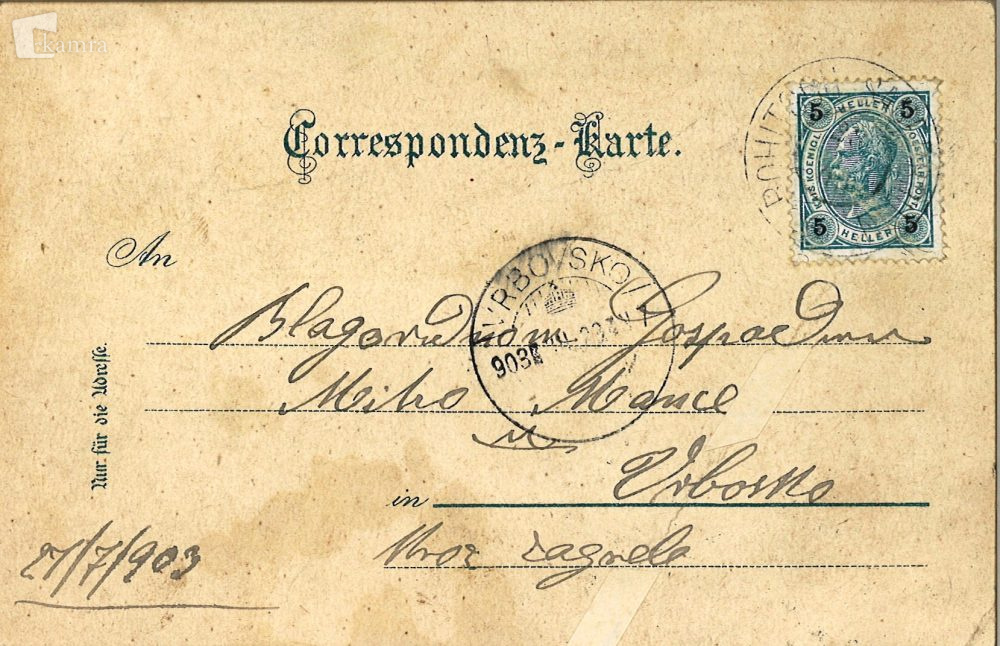 kamra
Correspondenz-Karte.
5 HELLER 5
KAIS. KOENIGL. OESTERR. POST.
5 HELLER 5
ROHITSCH
An
VRBOVSKO
903
Blagorodnom Gospodinu
Nur für die Adresse.
Mitro
u
in Vrbosko
Kroz Zagreb
27/7/903